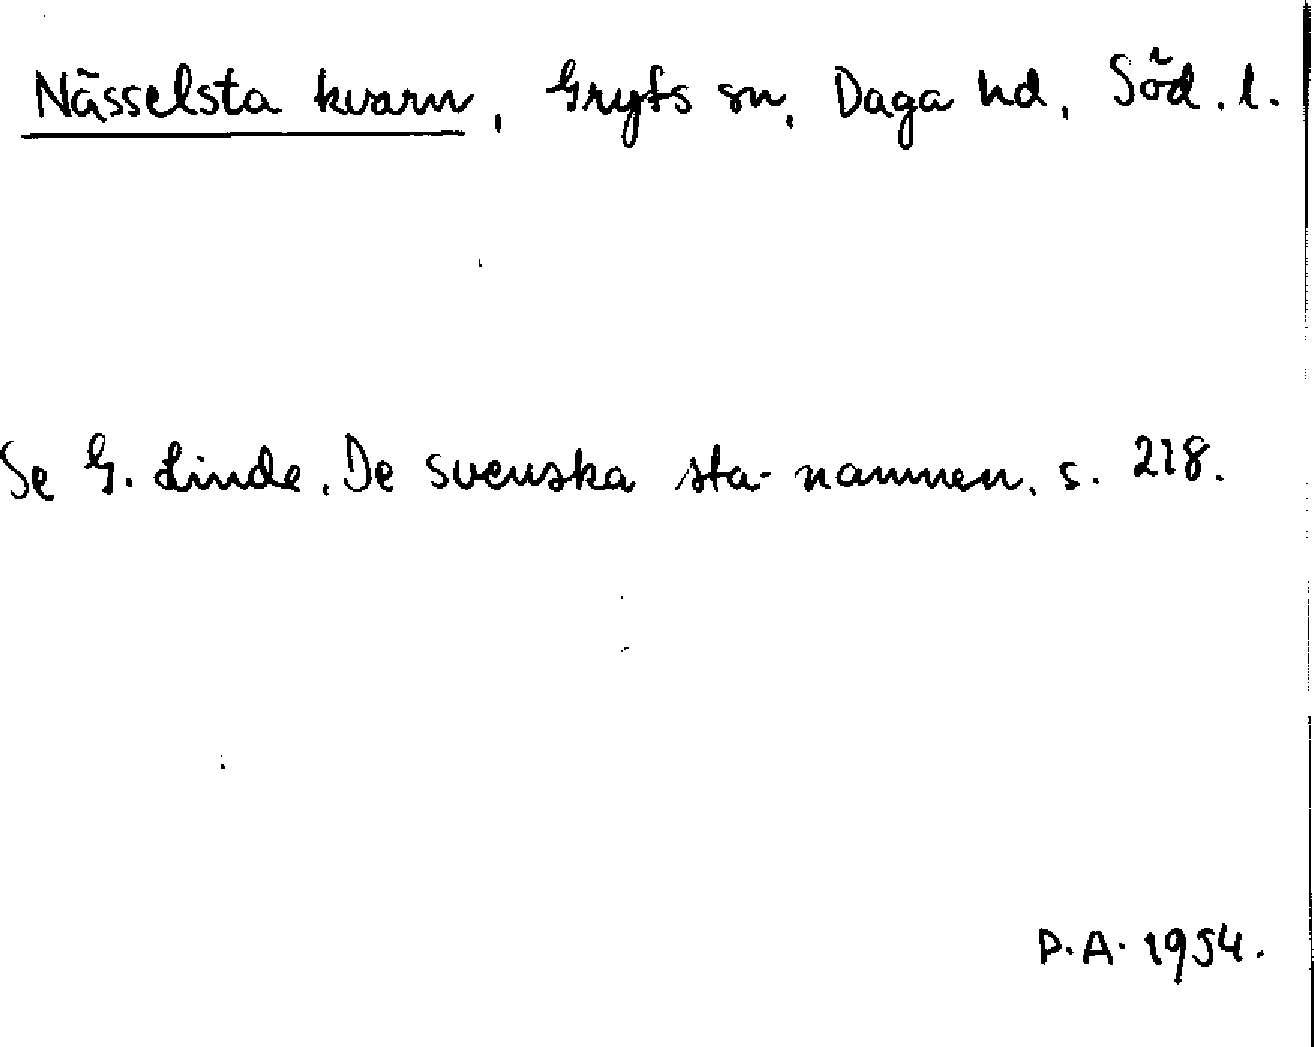 Nässelsta kvarn, Gryts sn, Daga hd, Söd. l.
Se G. Linde, De svenska sta-namnen, s. 218.
D.A. 1954.